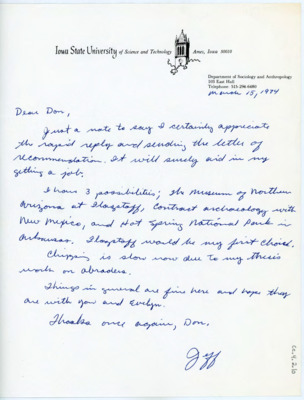 Iowa State University of Science and Technology Ames, Iowa 50010
Department of Sociology and Anthropology
103 East Hall
Telephone 515-294-6480
March 15, 1974
Dear Don,
Just a note to say I certainly appreciate
the rapid reply and sending the letter of
recommendation. It will surely aid in my
getting a job.
I have 3 possibilities; the Museum of Northern
Arizona at Flagstaff, Contract archaeology with
New Mexico, and Hot Spring National Park in
Arkansas. Flagstaff would be my first choice.
Chipping is slow now due to my thesis
work on abraders.
Things in general are fine here and hope they
are with you and Evelyn.
Thanks once again, Don.
Jeff